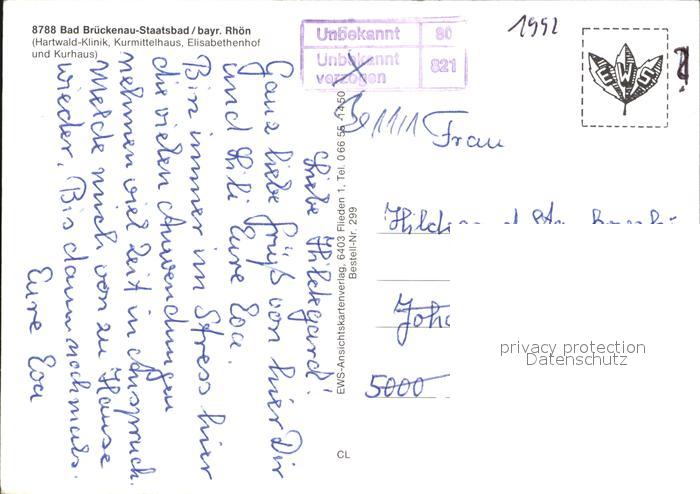 8788 Bad Brückenau-Staatsbad / bayr. Rhön
(Hartwald-Klinik, Kurmittelhaus, Elisabethenhof
und Kurhaus)
Unbekannt 80
Unbekannt
verzogen 821
1992
EWS
Liebe Hildegard!
Ganz liebe Grüß von hier Dir
und Lili Eure Eva.
Bin immer im Stress hier
die vielen Anwendungen
nehmen viel Zeit in Anspruch.
Melde mich von zu Hause
wieder. Bis dann nochmals.
Eure Eva
EWS-Ansichtskartenverlag, 6403 Flieden 1, Tel. 0 66 55 - 14 50
Bestell-Nr. 299
Frau
5000
privacy protection
Datenschutz
CL